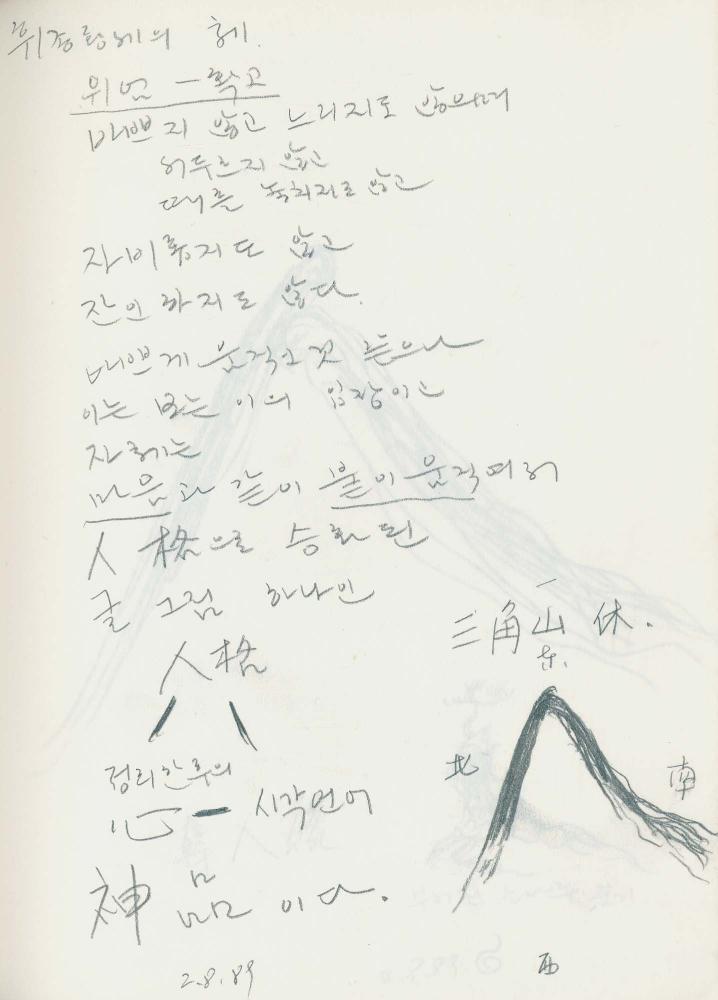 체.
위엄 — 확고
바쁘지 않고 느리지도 않으며
서두르지 않고
때를 놓치지도 않고
자비롭지도 않고
잔인하지도 않다.
바쁘게 움직인 것 같으나
이는 보는 이의 입장이고
자체는
마음과 같이 붓이 움직여서
人格으로 승화된
글 그림 하나인
人格
정리한 후의
心 — 시각언어
神品이다.
2.8.89
三角山 休.
東.
北
南
西